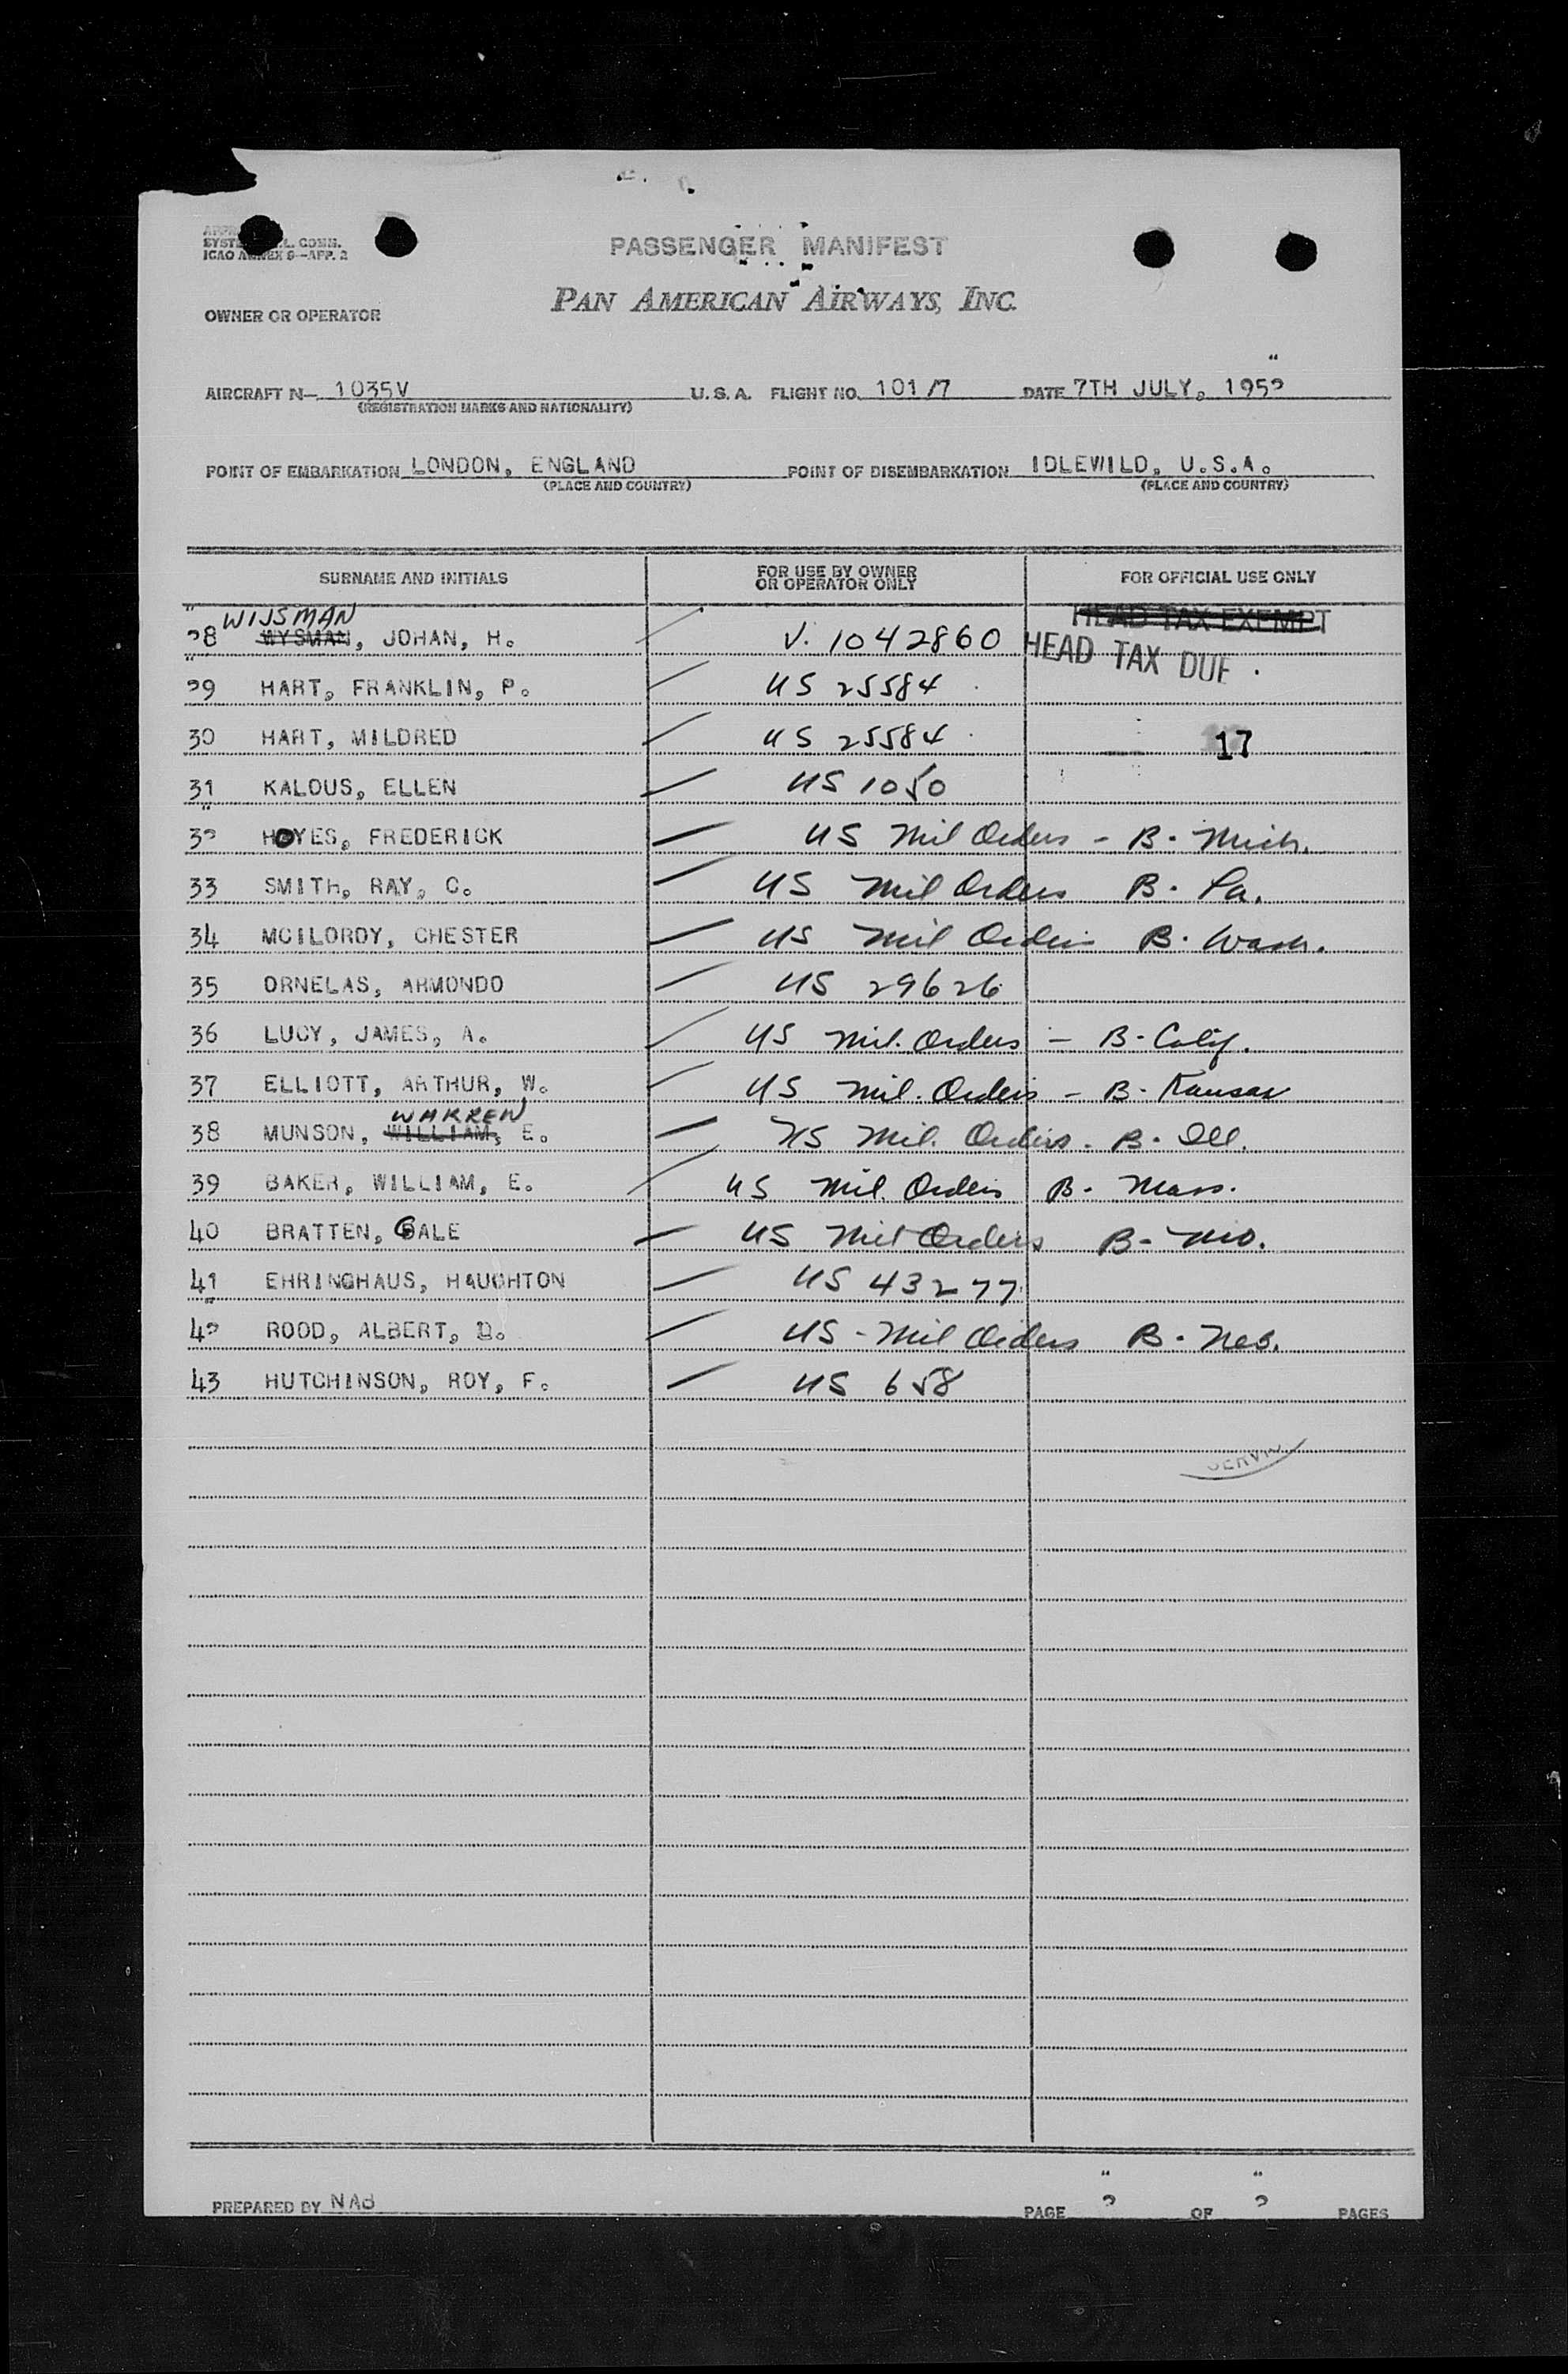 PASSENGER MANIFEST
ICAO ANNEX 9-APP. 2
OWNER OR OPERATOR PAN AMERICAN AIRWAYS, INC.
AIRCRAFT N- 1035V U. S. A. FLIGHT NO. 101/7 DATE 7TH JULY, 1952
(REGISTRATION MARKS AND NATIONALITY)
POINT OF EMBARKATION LONDON, ENGLAND POINT OF DISEMBARKATION IDLEWILD, U.S.A.
(PLACE AND COUNTRY) (PLACE AND COUNTRY)
SURNAME AND INITIALS FOR USE BY OWNER OR OPERATOR ONLY FOR OFFICIAL USE ONLY
WIJSMAN HEAD TAX EXEMPT
28 WYSMAN, JOHAN, H. V. 1042860 HEAD TAX DUE
29 HART, FRANKLIN, P. US 25584
30 HART, MILDRED US 25584 17
31 KALOUS, ELLEN US 1050
32 HOYES, FREDERICK US Mil Orders - B. Mich.
33 SMITH, RAY, C. US Mil Orders B. Pa.
34 MCILORDY, CHESTER US Mil Orders B. Wash.
35 ORNELAS, ARMONDO US 29626
36 LUCY, JAMES, A. US Mil. Orders - B. Calif.
37 ELLIOTT, ARTHUR, W. US Mil. Orders - B. Kansas
WARREN
38 MUNSON, WILLIAM, E. US Mil. Orders - B. Ill.
39 BAKER, WILLIAM, E. US Mil. Orders B. Mass.
40 BRATTEN, GALE US Mil Orders B- Mo.
41 EHRINGHAUS, HAUGHTON US 43277
42 ROOD, ALBERT, D. US - Mil Orders B. Neb.
43 HUTCHINSON, ROY, F. US 658
PREPARED BY NAB PAGE 2 OF 2 PAGES